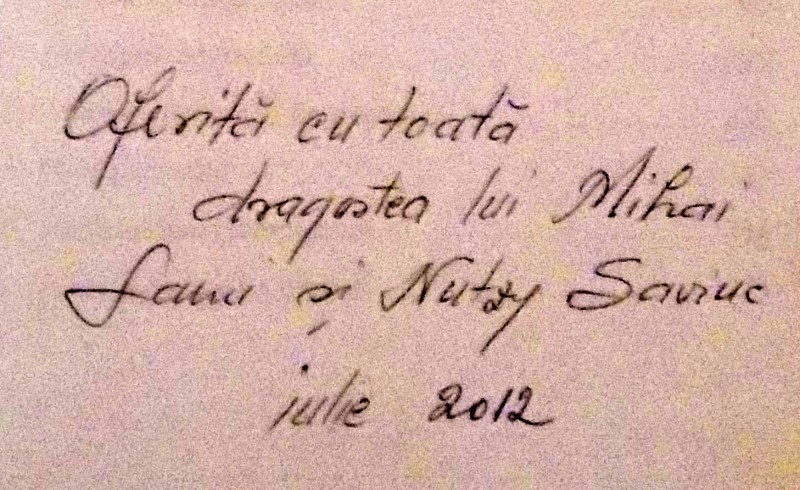 Oferită cu toată
dragostea lui Mihai
și Nutzy Saviuc
iulie 2012